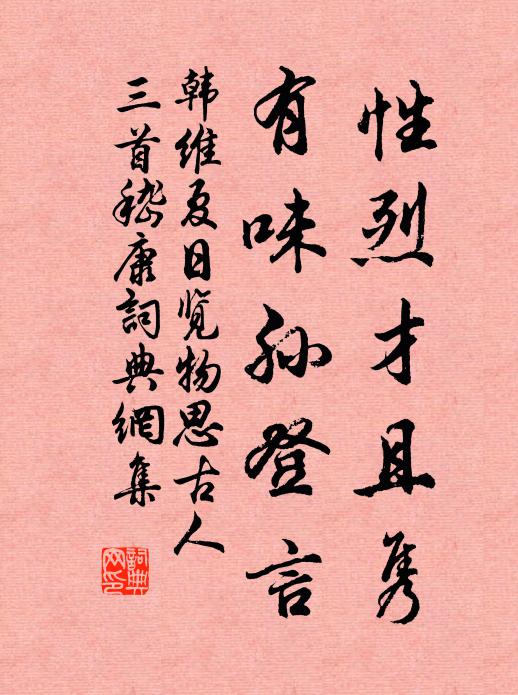 性烈才且隽
有味孙登言
韩维夏日览物思古人
三首嵇康词典網集
詞典網印